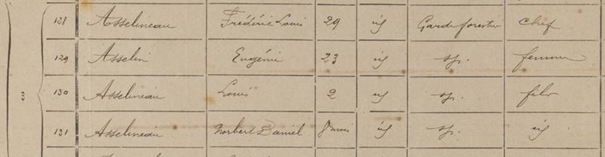 128 Asselineau Frédéric Louis 29 id Garde forestier chef
129 Asselin Eugénie 23 id sp. femme
130 Asselineau Louis 2 id sp. fils
131 Asselineau Norbert Daniel id sp. id